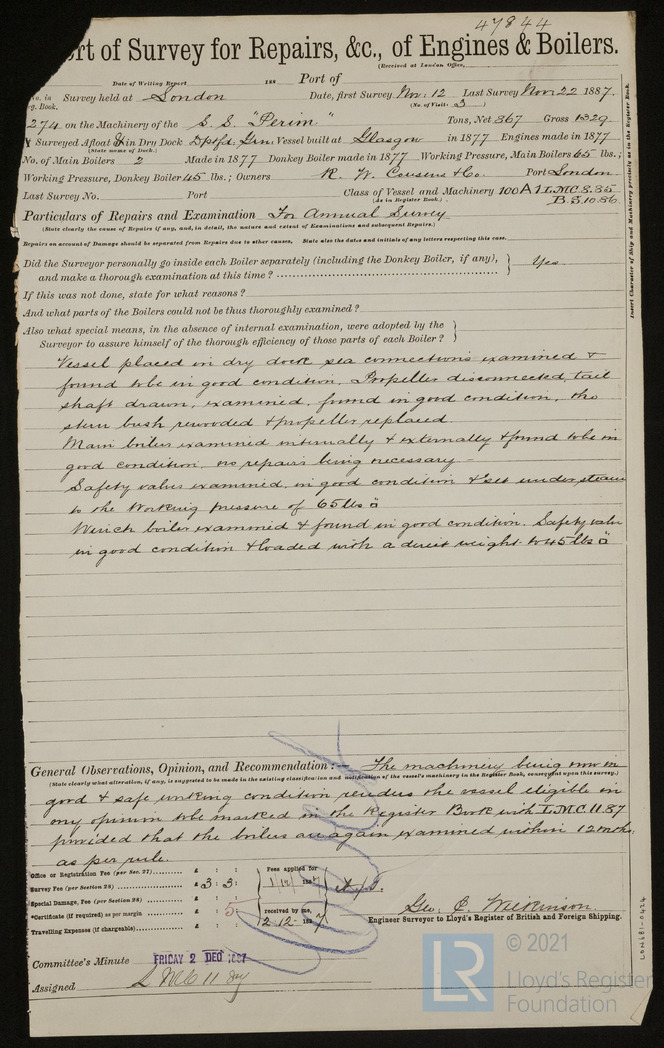 47844
ort of Survey for Repairs, &c., of Engines & Boilers.
(Received at London Office,
Date of Writing Report 188 Port of
No. in Reg. Book. Survey held at London Date, first Survey Nov: 12 Last Survey Nov: 22 1887.
(No. of Visits: 3)
274 on the Machinery of the S. S. "Perim" Tons, Net 867 Gross 1329
Surveyed Afloat or in Dry Dock Dptfd. Grn: Vessel built at Glasgow in 1877 Engines made in 1877
(State name of Dock.)
No. of Main Boilers 2 Made in 1877 Donkey Boiler made in 1877 Working Pressure, Main Boilers 65 lbs.;
Working Pressure, Donkey Boiler 45 lbs.; Owners R. W. Cousens & Co. Port London
Last Survey No. Port Class of Vessel and Machinery 100A1 L.M.C. 8.85
(As in Register Book.) B.S. 10.86
Particulars of Repairs and Examination For Annual Survey
(State clearly the cause of Repairs if any, and, in detail, the nature and extent of Examinations and subsequent Repairs.)
Repairs on account of Damage should be separated from Repairs due to other causes. State also the dates and initials of any letters respecting this case.
Did the Surveyor personally go inside each Boiler separately (including the Donkey Boiler, if any), and make a thorough examination at this time? Yes
If this was not done, state for what reasons?
And what parts of the Boilers could not be thus thoroughly examined?
Also what special means, in the absence of internal examination, were adopted by the
Surveyor to assure himself of the thorough efficiency of those parts of each Boiler?
Vessel placed in dry dock sea connections examined &
found to be in good condition. Propeller disconnected, tail
shaft drawn, examined, found in good condition, the
stern bush rewooded & propeller replaced.
Main boilers examined internally & externally & found to be in
good condition, no repairs being necessary -
Safety valves examined, in good condition & set under steam
to the working pressure of 65 lbs □
Winch boiler examined & found in good condition. Safety valve
in good condition & loaded with a direct weight to 45 lbs □
General Observations, Opinion, and Recommendation:- The machinery being now in
(State clearly what alteration, if any, is suggested to be made in the existing classification and notification of the vessel's machinery in the Register Book, consequent upon this survey.)
good & safe working condition renders the vessel eligible in
my opinion to be marked in the Register Book with L.M.C. 11.87
provided that the boilers are again examined within 12 months
as per rule.
Office or Registration Fee (per Sec. 27) £ : :
Survey Fee (per Section 28) £ 3 : 3 :
Special Damage, Fee (per Section 28) £ : :
*Certificate (if required) as per margin £ : 5 :
Travelling Expenses (if chargeable) £ : :
Fees applied for
1/12/1887
received by me,
2.12.1887
Geo. C. Wilkinson
Engineer Surveyor to Lloyd's Register of British and Foreign Shipping.
Committee's Minute FRIDAY 2 DEC 1887
Assigned L M C 11 87
Insert Character of Ship and Machinery precisely as in the Register Book.
LON681-0424
LR
© 2021
Lloyd's Register
Foundation